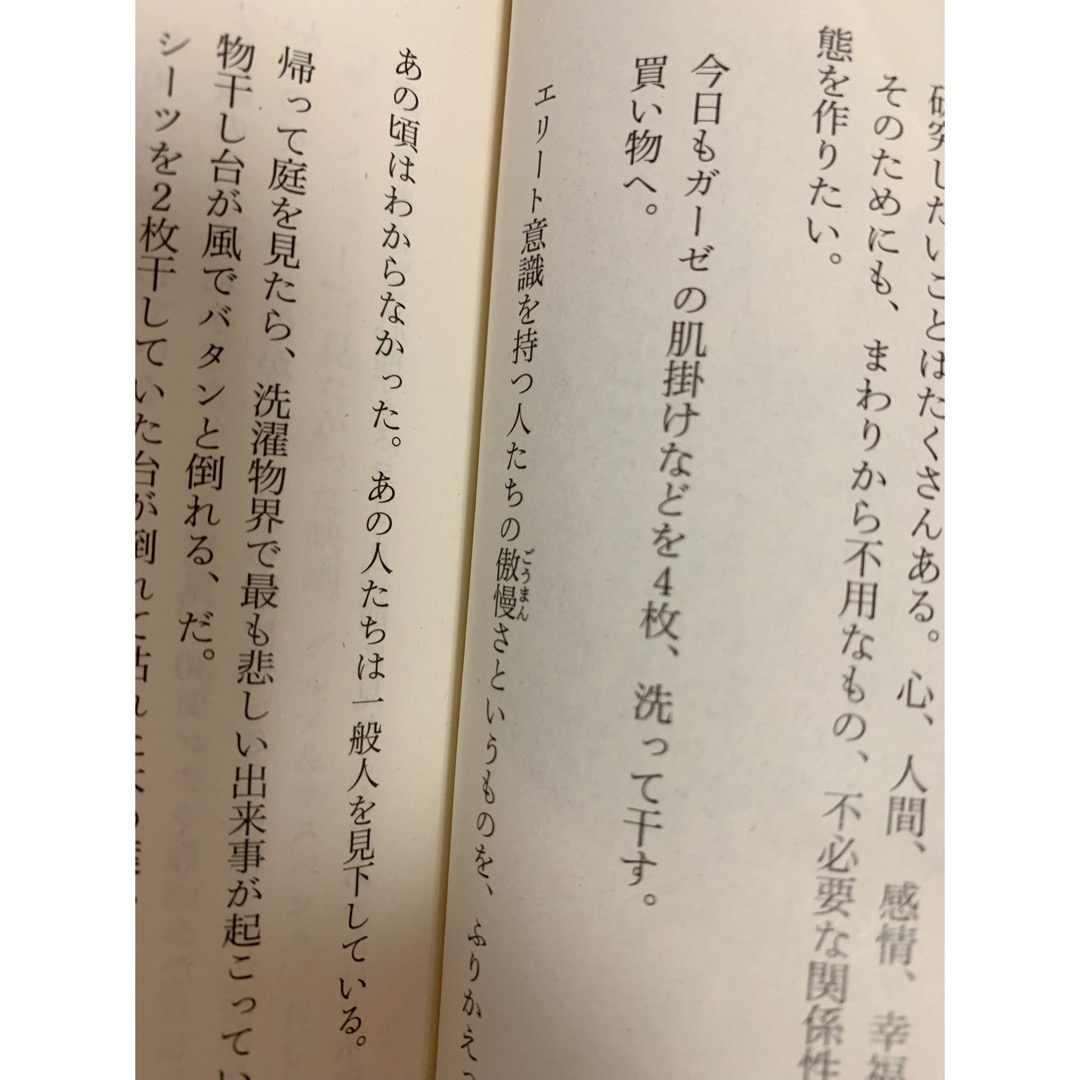 研究したいことはたくさんある。心、人間、感情、幸福
そのためにも、まわりから不用なもの、不必要な関係性
態を作りたい。
今日もガーゼの肌掛けなどを4枚、洗って干す。
買い物へ。
エリート意識を持つ人たちの傲慢さというものを、ふりかえっ
ごうまん
あの頃はわからなかった。あの人たちは一般人を見下している。
帰って庭を見たら、洗濯物界で最も悲しい出来事が起こってい
物干し台が風でバタンと倒れる、だ。
シーツを2枚干していた台が倒れて枯れた木の